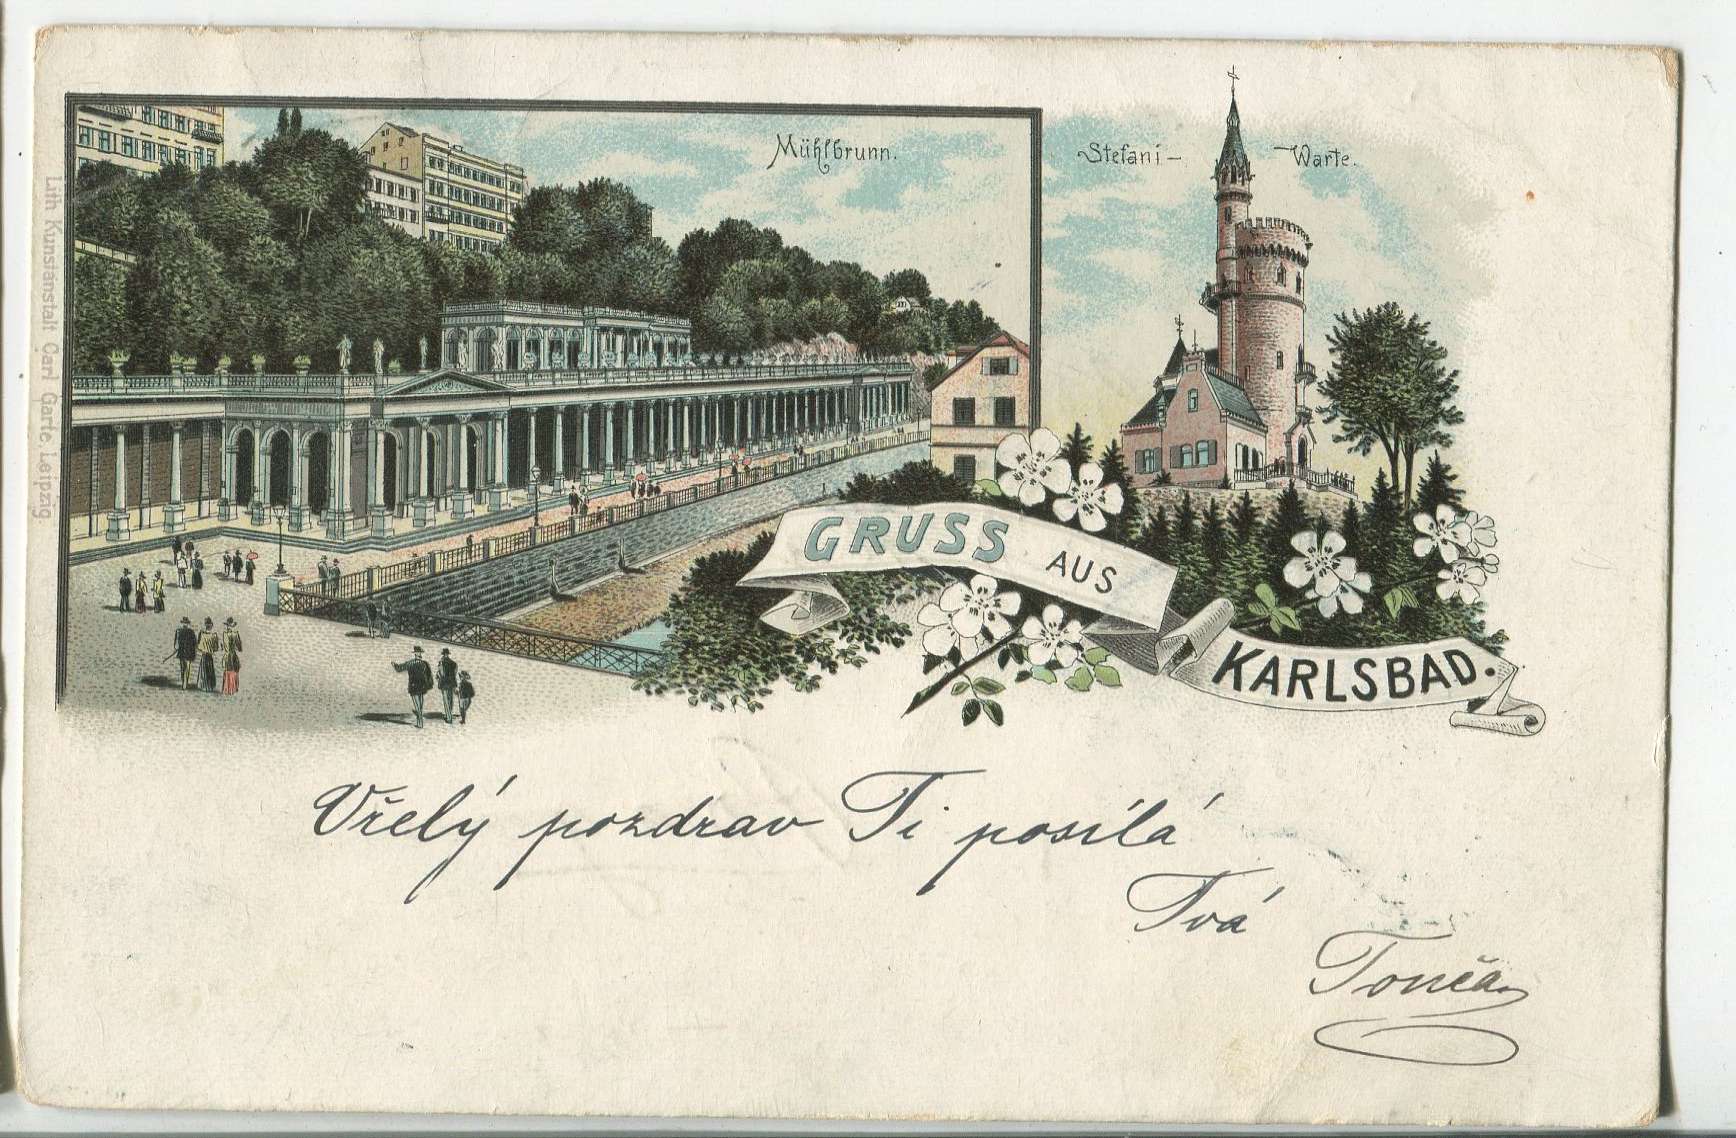 Mühlbrunn.
Stefani - Warte.
GRUSS AUS
KARLSBAD.
Lith Kunstanstalt Carl Garte, Leipzig
Vřelý pozdrav Ti posílá
Tvá
Tonča